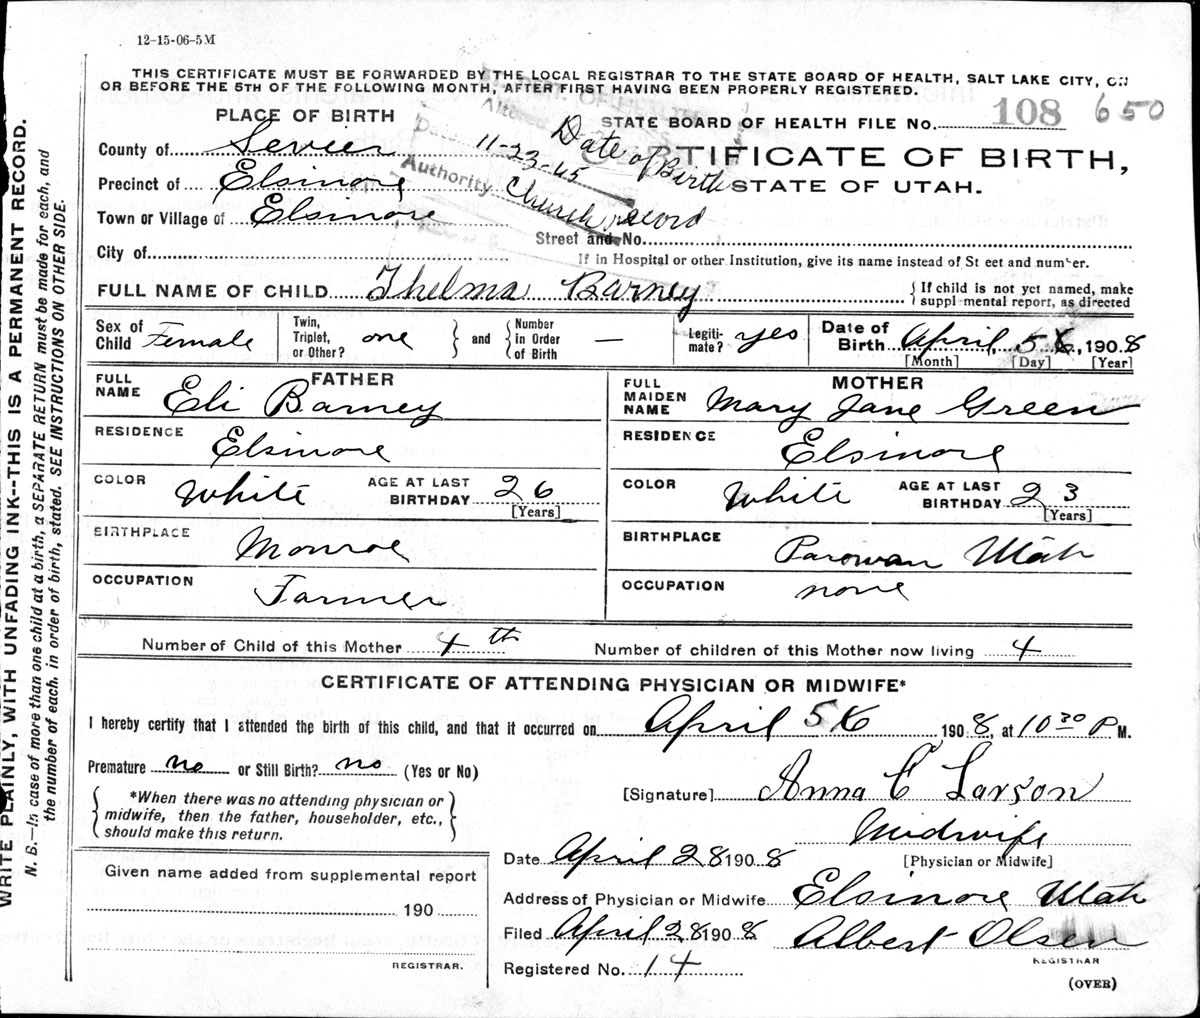 12-15-06-5M
THIS CERTIFICATE MUST BE FORWARDED BY THE LOCAL REGISTRAR TO THE STATE BOARD OF HEALTH, SALT LAKE CITY, ON
OR BEFORE THE 5TH OF THE FOLLOWING MONTH, AFTER FIRST HAVING BEEN PROPERLY REGISTERED.
PLACE OF BIRTH
STATE BOARD OF HEALTH FILE No. 108 650
County of Sevier
TIFICATE OF BIRTH,
STATE OF UTAH.
Altered Date of Birth
Date 11-23-45
Authority Church record
Precinct of Elsinore
Town or Village of Elsinore
Street and No.
City of
If in Hospital or other Institution, give its name instead of St eet and number.
FULL NAME OF CHILD Thelma Barney
{ If child is not yet named, make
suppl mental report, as directed
Sex of Child Female
Twin, Triplet, or Other? one
and Number in Order of Birth —
Legiti-mate? yes
Date of Birth April, 5 6, 1908
[Month] [Day] [Year]
FATHER
FULL NAME Eli Barney
RESIDENCE Elsinore
COLOR White AGE AT LAST BIRTHDAY 26
[Years]
BIRTHPLACE Monroe
OCCUPATION Farmer
MOTHER
FULL MAIDEN NAME Mary Jane Green
RESIDENCE Elsinore
COLOR White AGE AT LAST BIRTHDAY 23
[Years]
BIRTHPLACE Parowan Utah
OCCUPATION none
Number of Child of this Mother 4th Number of children of this Mother now living 4
CERTIFICATE OF ATTENDING PHYSICIAN OR MIDWIFE*
I hereby certify that I attended the birth of this child, and that it occurred on April 5 6 1908, at 10 30 P M.
Premature no or Still Birth? no (Yes or No)
*When there was no attending physician or
midwife, then the father, householder, etc.,
should make this return.
[Signature] Anna C Larson
Midwife
[Physician or Midwife]
Date April 28 1908
Given name added from supplemental report
190
REGISTRAR.
Address of Physician or Midwife Elsinore Utah
Filed April 28 1908 Albert Olsen
REGISTRAR
Registered No. 14
(OVER)
WRITE PLAINLY, WITH UNFADING INK--THIS IS A PERMANENT RECORD.
N. B.—In case of more than one child at a birth, a SEPARATE RETURN must be made for each, and
the number of each, in order of birth, stated. SEE INSTRUCTIONS ON OTHER SIDE.